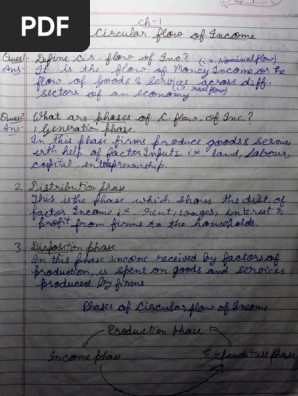 PDF
Ch-1
Circular flow of Income
Ques1- Define Cir flow of Inc? (i.e Nominal flow)
Ans- It is the flow of Money Income or the
flow of goods & Services across diff.
sectors of an economy (i.e real flow)
Ques2 What are phases of C. flow of Inc.?
Ans- 1. Generation phase
In this phase firms produce goods & Services
with help of factor inputs i.e land, labour,
capital, entrepreneurship.
2. Distribution phase
This is the phase which shows the dist. of
factor Income i.e. Rent, wages, interest &
profit from firms to the households.
3. Disposition phase
In this phase income received by factors of
production, is spent on goods and services
produced by firms
Phases of Circular flow of Income
Production phase
Income phase Expenditure phase